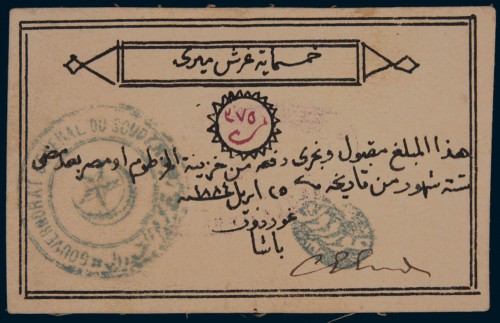 خمسماية غرش ميرى
هذا المبلغ مقبول ونجرى دفعه من خزينة الخرطوم او مصر بعد مضى
ستة شهور من تاريخه ٢٥ ابريل ١٨٨٤ سنة
غوردون
باشا
GOUVERNORAT RAL DU SOUD